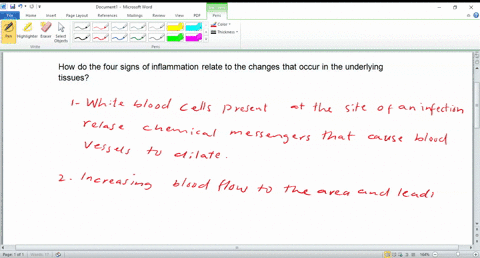 Document1 - Microsoft Word
File Home Insert Page Layout References Mailings Review View PDF Pens
Pen Highlighter Eraser Select Objects
Color
Thickness
Write Pens
How do the four signs of inflammation relate to the changes that occur in the underlying
tissues?
1- White blood cells present at the site of an infection
relase chemical messengers that cause blood
vessels to dilate.
2. Increasing blood flow to the area and leadi
Page: 1 of 1